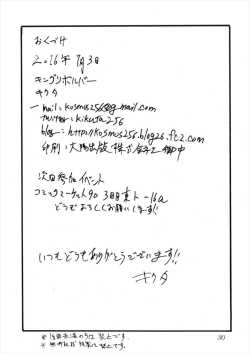 おくづけ
2016年7月3日
キングリボルバー
キクタ
mail: kosmos256@g-mail.com
twitter: kikuta256
blog: http://kosmos256.blog26.fc2.com
印刷: 大陽出版株式会社 御中
次回参加イベント
コミックマーケット90 3日目 東ト-16a
どうぞよろしくお願いします!!
いつもどうもありがとうございます!!
キクタ
※ 禁止です。
※ 無断転載 禁止です。
30